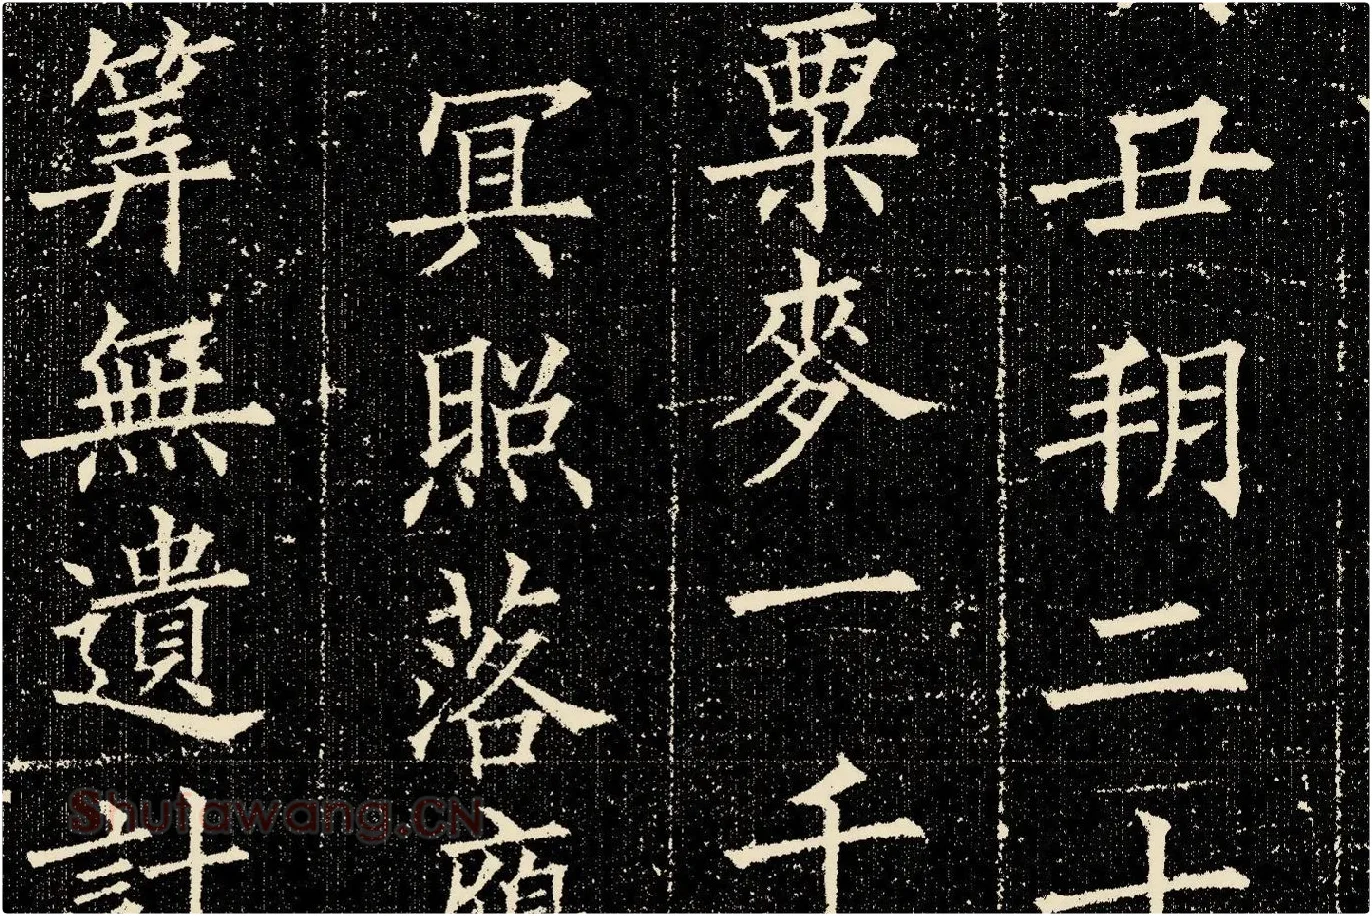 丑朔二十
粟麥一千
冥照落
筭無遺計
Shutawang.CN